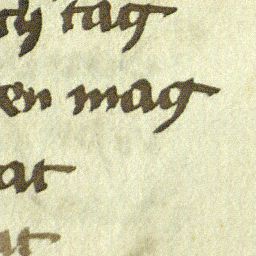 ch tag
en mag
at
at